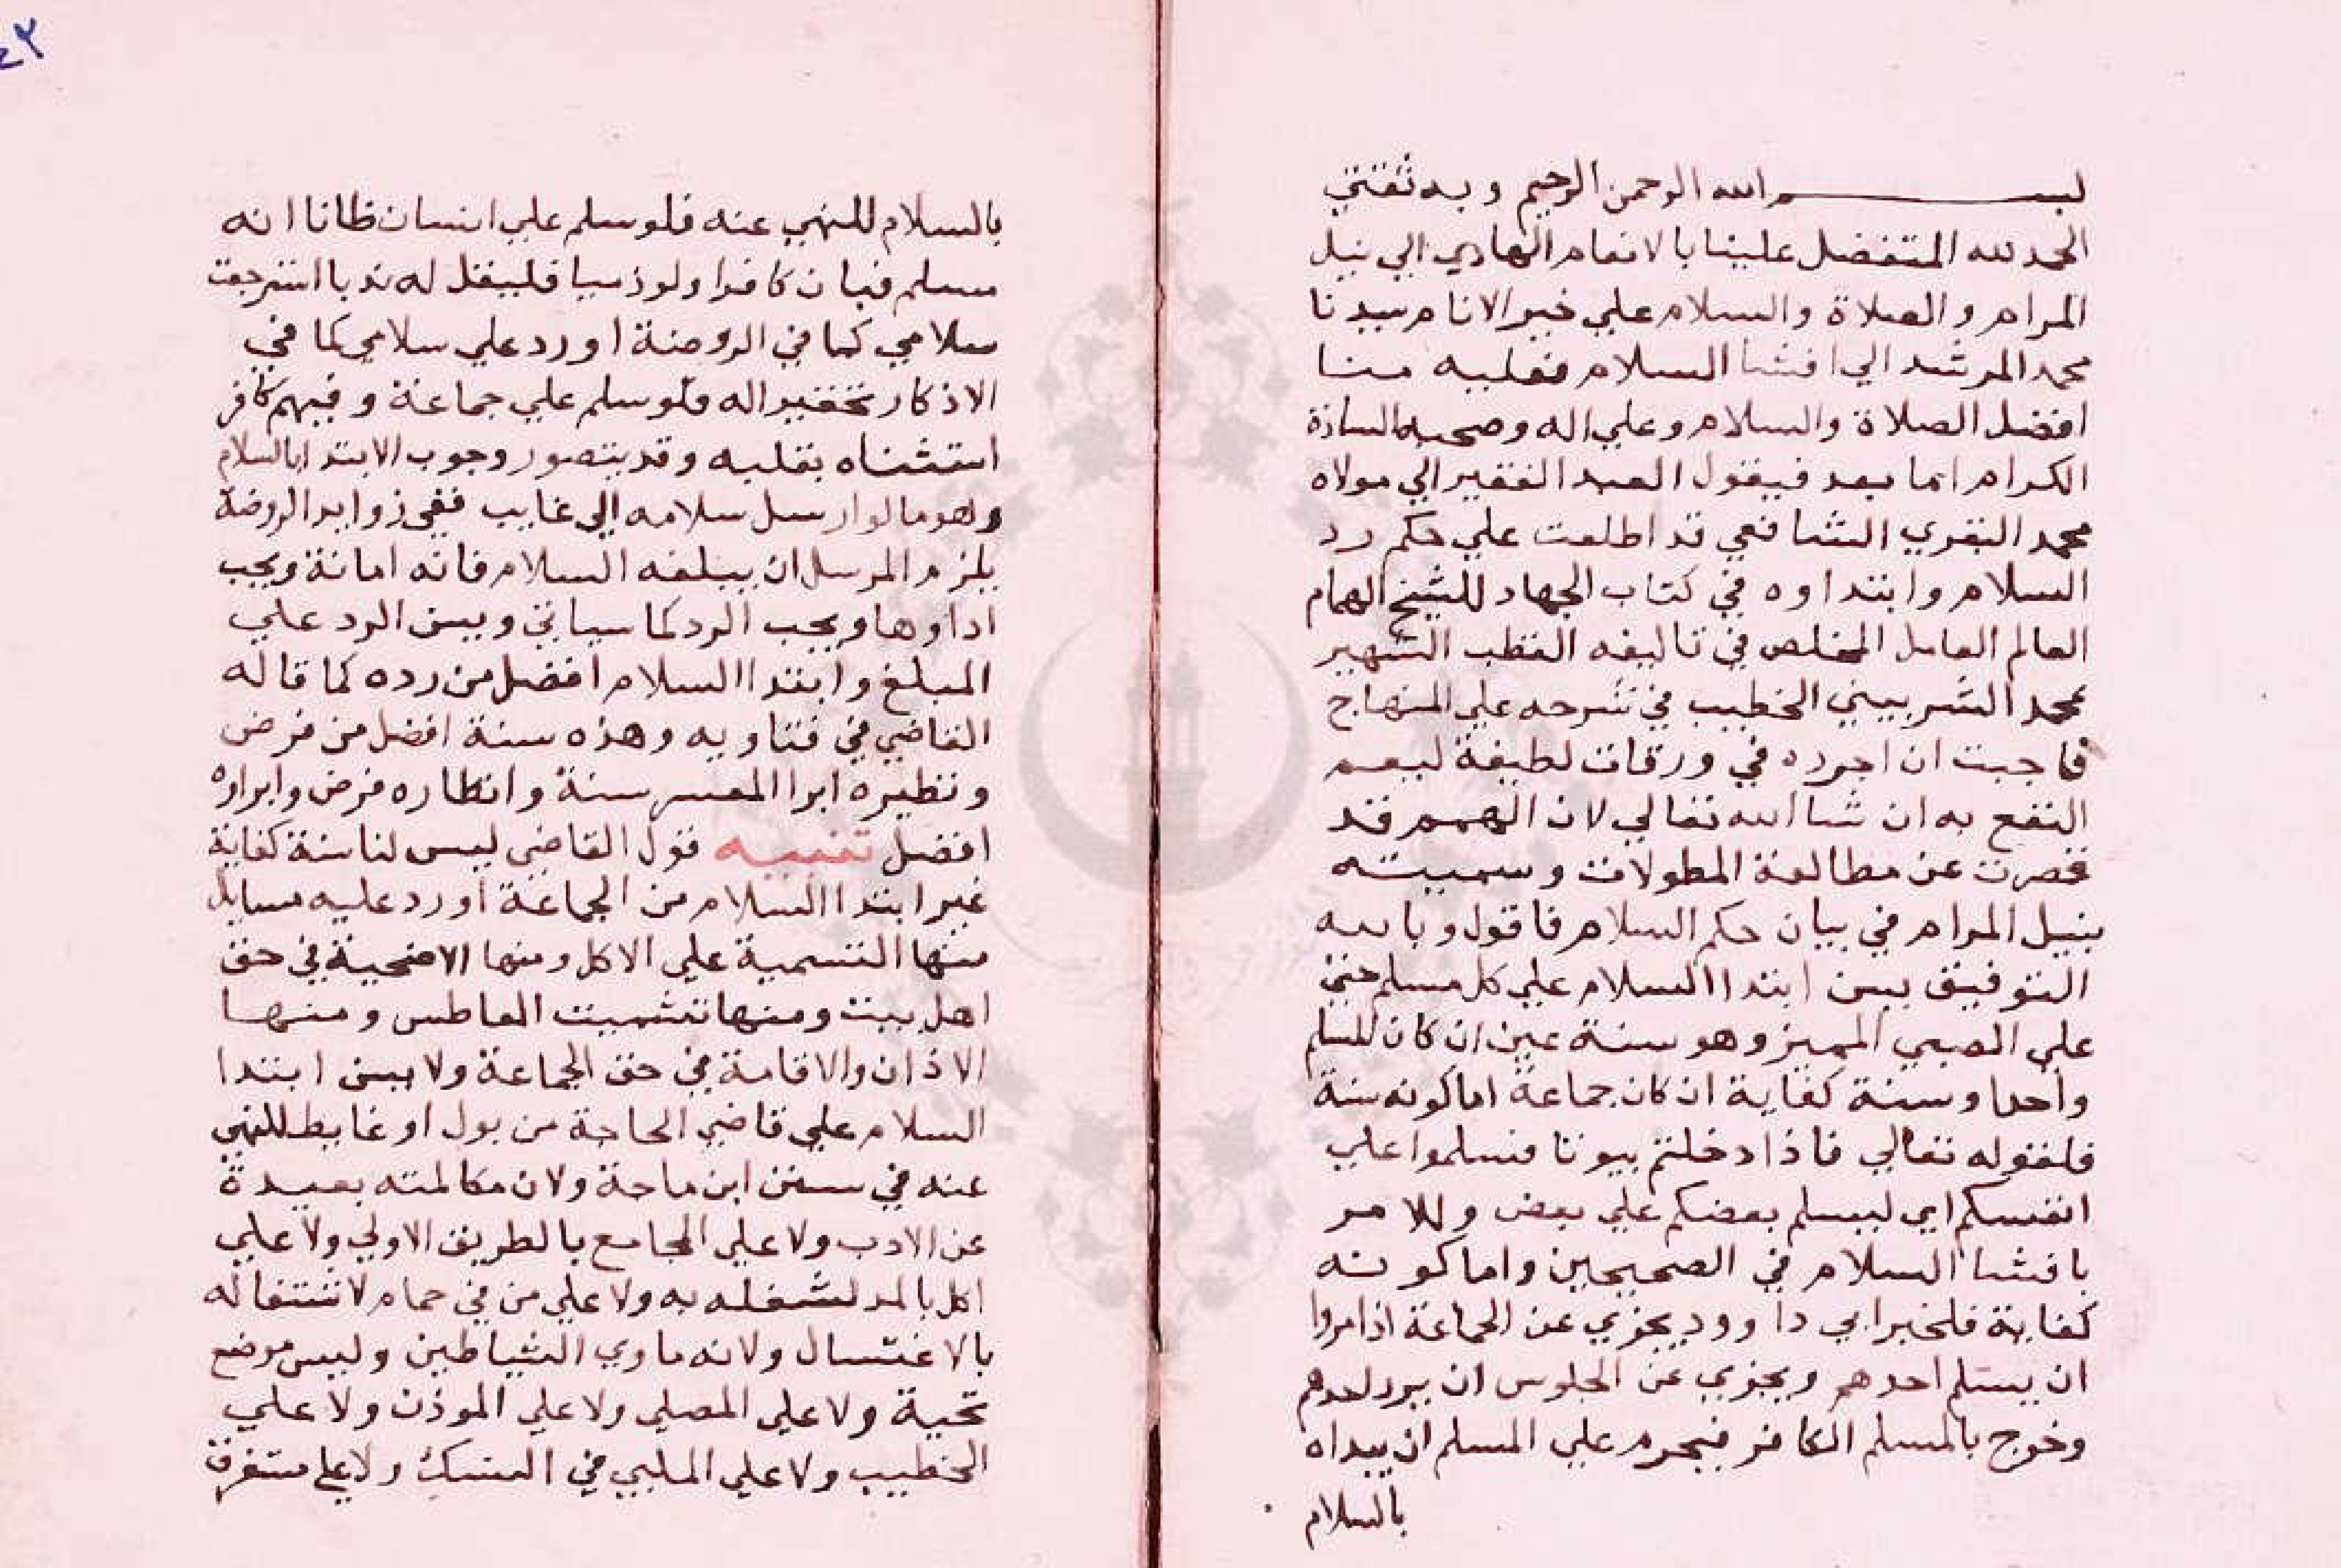 بسم الله الرحمن الرحيم وبه ثقتي
الحمد لله المتفضل علينا بالانعام الهادي الي نيل
المرام والصلاة والسلام علي خير الانام سيدنا
محمد المرشد الي افشا السلام فعليه منا
افضل الصلاة والسلام وعلي اله وصحبه السادة
الكرام اما بعد فيقول العبد الفقير الي مولاه
محمد البقري الشافعي قد اطلعت علي حكم رد
السلام وابتداوه في كتاب الجهاد للشيخ الهمام
العالم العامل المخلص في تاليفه القطب الشهير
محمد الشربيني الخطيب في شرحه علي المنهاج
فاحببت ان اجرده في ورقات لطيفة ليعم
النفع به ان شا الله تعالي لان الهمم قد
قصرت عن مطالعة المطولات وسميته
بنيل المرام في بيان حكم السلام فاقول وبالله
التوفيق يسن ابتدا السلام علي كل مسلم حتي
علي الصبي المميز وهو سنة عين ان كان المسلم
واحدا وسنة كفاية ان كان جماعة اما كونه سنة
فلقوله تعالي فاذا دخلتم بيوتا فسلموا علي
انفسكم اي ليسلم بعضكم علي بعض وللامر
بافشا السلام في الصحيحين واما كونه
كفاية فلخبر ابي داوود يجزي عن الجماعة اذا مروا
ان يسلم احدهم ويجزي عن الجلوس ان يرد احدهم
وخرج بالمسلم الكافر فيحرم علي المسلم ان يبداه
بالسلام
٤٢
بالسلام للنهي عنه فلو سلم علي انسان ظانا انه
مسلم فبان كافرا ولو ذميا فليقل له ندبا استرجعت
سلامي كما في الروضة او رد علي سلامي كما في
الاذكار تحقيرا له فلو سلم علي جماعة وفيهم كافر
استثناه بقلبه وقد يتصور وجوب الابتدا بالسلام
وهو ما لو ارسل سلامه الي غايب ففي زوايد الروضة
يلزم المرسل ان يبلغه السلام فانه امانة ويجب
اداوها ويجب الرد كما سياتي ويسن الرد علي
المبلغ وابتدا السلام افضل من رده كما قاله
القاضي في فتاويه وهذه سنة افضل من فرض
ونظيره ابرا المعسر سنة وانظاره فرض وابراوه
افضل تنبيه قول القاضي ليس لنا سنة كفاية
غير ابتدا السلام من الجماعة اورد عليه مسايل
منها التسمية علي الاكل ومنها الاضحية في حق
اهل بيت ومنها تشميت العاطس ومنها
الاذان والاقامة في حق الجماعة ولا يسن ابتدا
السلام علي قاضي الحاجة من بول او غايط للنهي
عنه في سنن ابن ماجة ولان مكالمته بعيدة
عن الادب ولا علي المجامع بالطريق الاولي ولا علي
اكل بالمد لشغله به ولا علي من في حمام لاشتغاله
بالاغتسال ولانه ماوي الشياطين وليس موضع
تحية ولا علي المصلي ولا علي الموذن ولا علي
الخطيب ولا علي الملبي في النسك ولا علي مستغرق